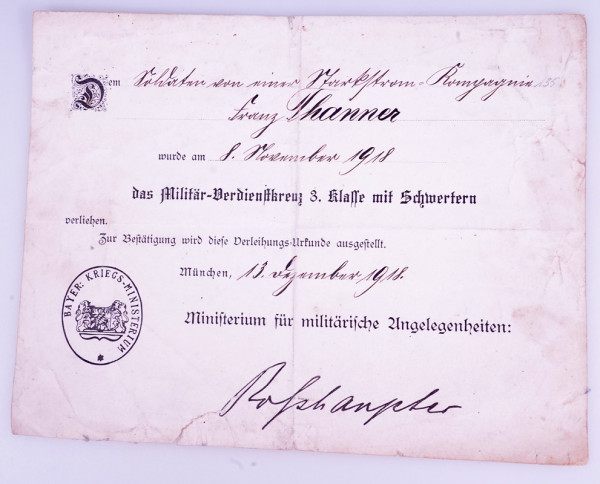 Dem Soldaten von einer Starkstrom-Kompagnie
Franz Thanner
wurde am 8. November 1918
das Militär-Verdienstkreuz 3. Klasse mit Schwertern
verliehen.
Zur Bestätigung wird diese Verleihungs-Urkunde ausgestellt.
München, 13. Dezember 1918.
BAYER: KRIEGS-MINISTERIUM
Ministerium für militärische Angelegenheiten:
Roßhaupter